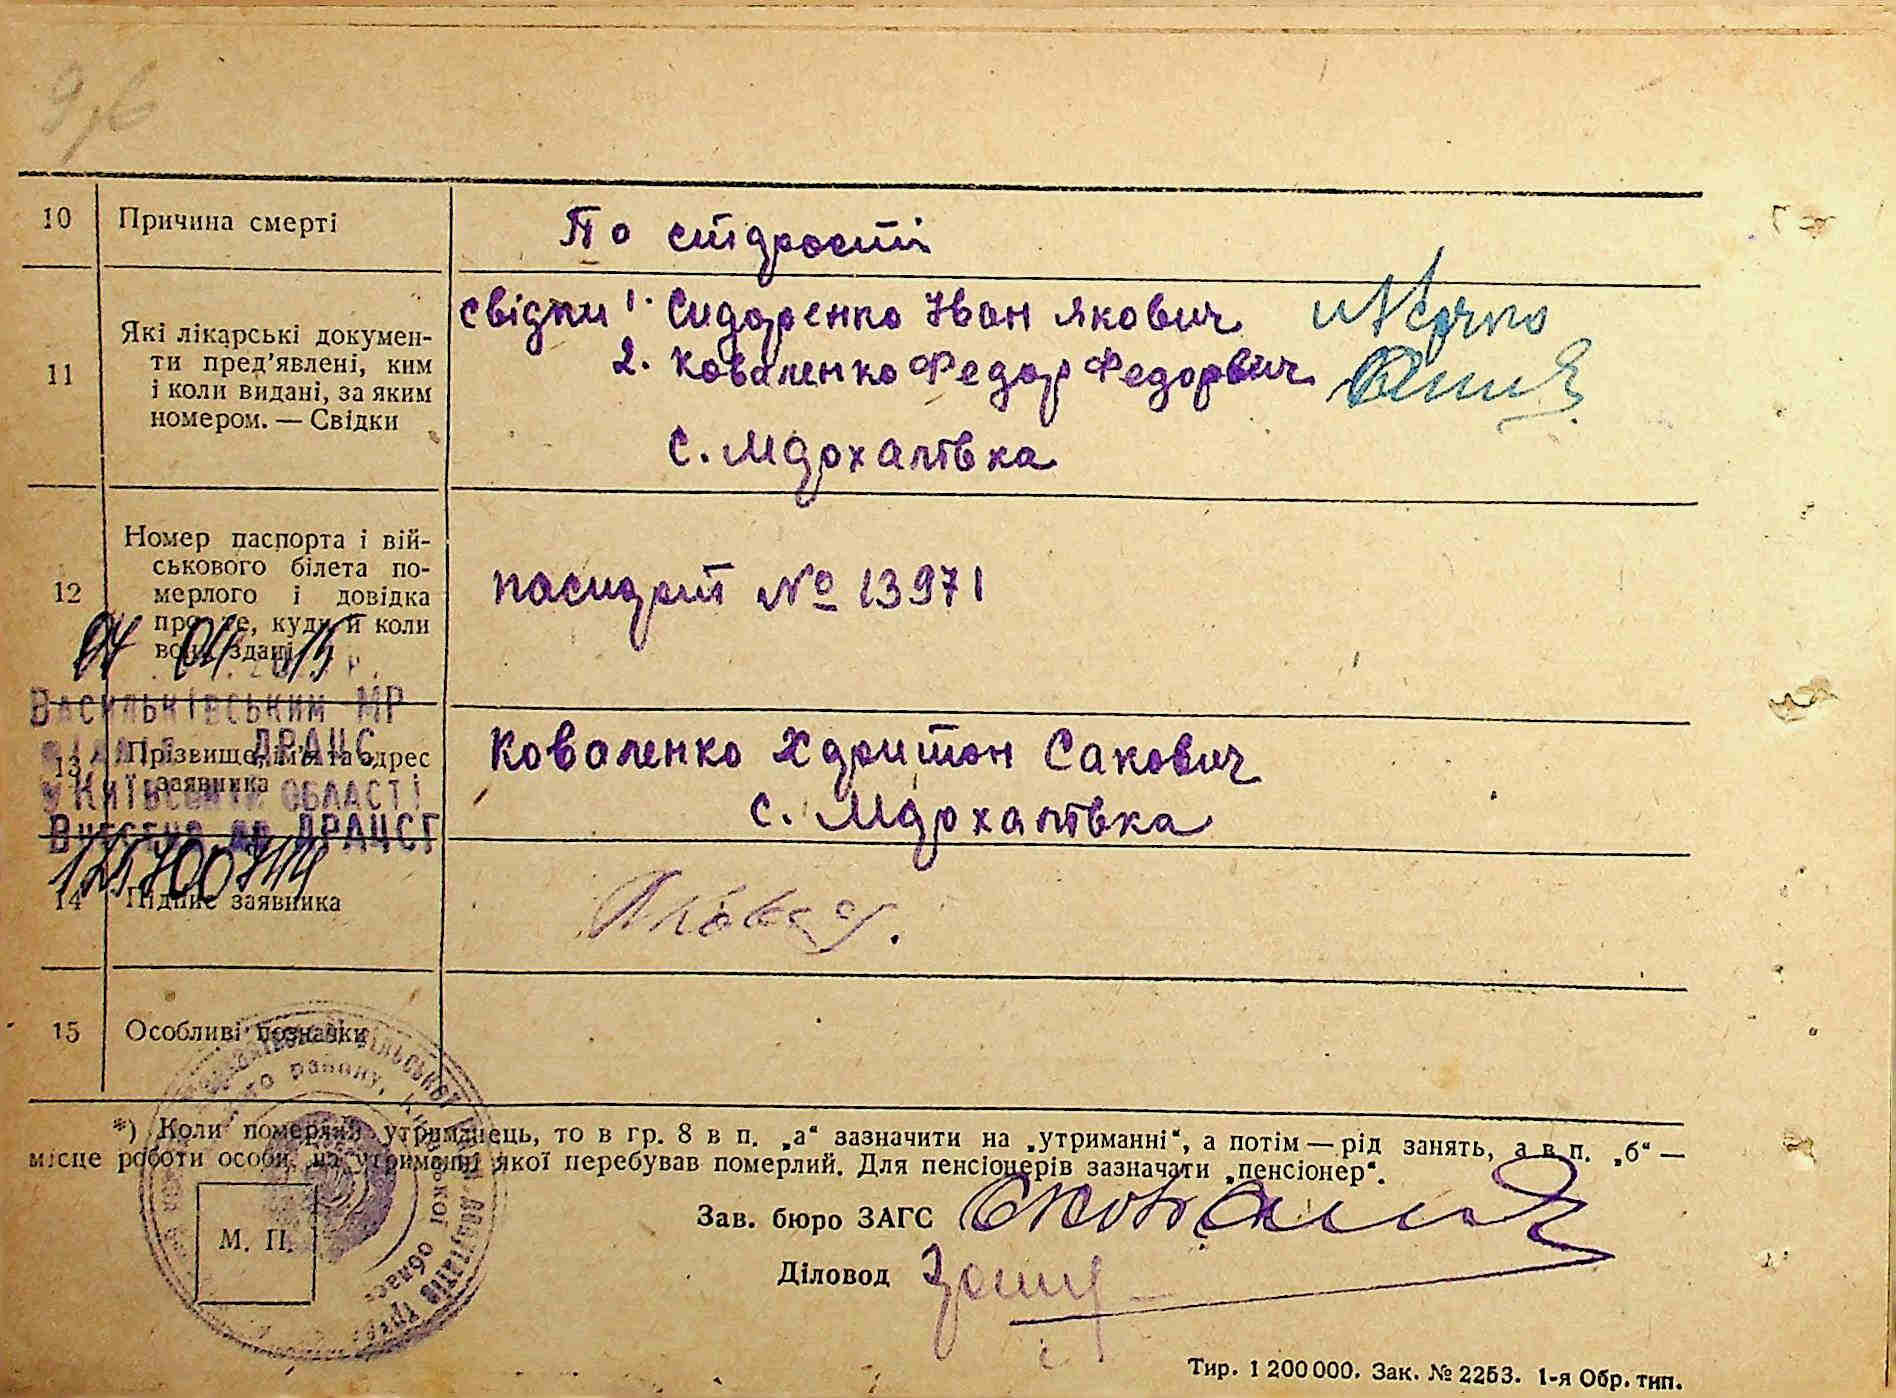 10 Причина смерті По старості
11 Які лікарські докумен-
ти пред'явлені, ким
і коли видані, за яким
номером. — Свідки
свідки 1. Сидоренко Іван Якович
2. Коваленко Федор Федорович
с. Мархалівка
12 Номер паспорта і вій-
ськового білета по-
мерлого і довідка
про це, куди й коли
вони здані
паспорт № 13971
04 04 15 р.
Васильківським МР
ДРАЦС
у Київській області
Внесено до ДРАЦСГ
13 Прізвище, ім'я та адрес
заявника
Коваленко Харитон Сакович
с. Мархалівка
14 Підпис заявника
15 Особливі позначки
*) Коли померлий утриманець, то в гр. 8 в п. „а“ зазначити на „утриманні“, а потім — рід занять, а в п. „б“ —
місце роботи особи, на утриманні якої перебував померлий. Для пенсіонерів зазначати „пенсіонер“.
Зав. бюро ЗАГС
М. П.
Діловод
Тир. 1 200 000. Зак. № 2253. 1-я Обр. тип.